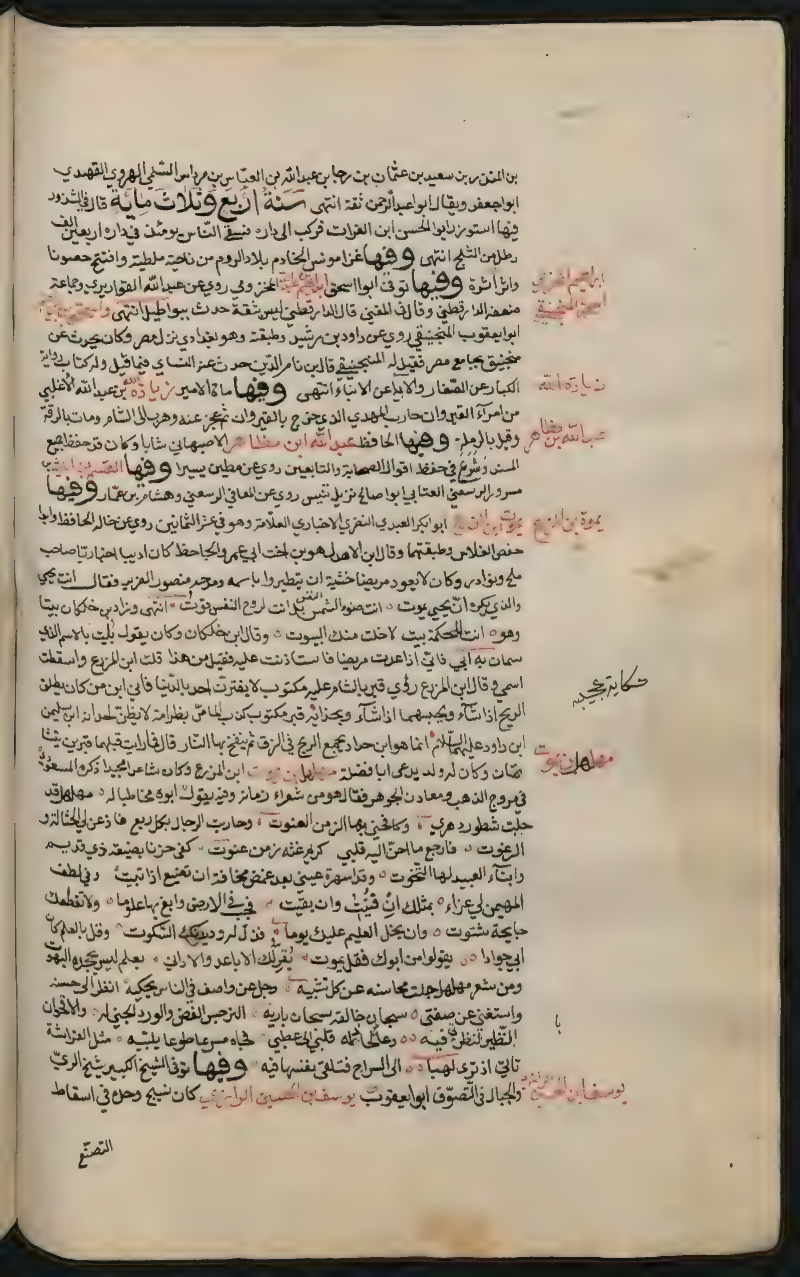 بن المنذر بن سعيد بن عثمان بن رجا بن عبد الله بن العباس بن مرداس السلمي الهروي القهندي
ابو جعفر ويقال ابو عبد الرحمن ثقة انتهى سنة اربع وثلاث ماية قال في الشذور
فيها استوزر ابو الحسن ابن الفرات فركب الى داره فسقى الناس يومئذ في داره اربعين الف
رطل من الثلج انتهى وفيها غزا مونس الخادم بلاد الروم من ناحية ملطية وافتتح حصونا
واثر اثرة وفيها توفي ابو اسحق ابراهيم المخزومي روى عن عبد الله القواريري وجماعة
ضعفه الدارقطني وقال في المغني قال الدارقطني ليس بثقة حدث ببواطيل انتهى واسحق
ابو يعقوب المنجنيقي روى عن داود بن رشيد وطبقته وهو بغدادي نزل مصر وكان يحدث عن
منجنيق بجامع مصر فقيل له المنجنيقي قال ابن ناصر الدين حدث عنه النساي فيما قيل وله كتاب رواية
الكبار عن الصغار والاباء عن الابناء انتهى وفيها مات الامير زيادة الله بن عبد الله الاغلبي
من امراء القيروان حارب المهدي الذي خرج بالقيروان ثم عجز عنه وهرب الى الشام ومات بالرقة
وقيل بالرملة وفيها الحافظ عبد الله ابن مظاهر الاصبهاني شابا وكان قد حفظ جميع
المسند وشرع في حفظ اقوال الصحابة والتابعين روى عن مطين يسيرا وفيها القاسم بن الليث بن
مسرور الرسعني العتابي ابو صالح نزيل تنيس روى عن المعافى الرسعني وهشام بن عمار وفيها
يموت ابن المزرع ابو بكر العبدي البصري الاخباري العلامة وهو في عشر الثمانين روى عن خاله الجاحظ وابي
حفص الفلاس وطبقتهما وقال ابن الاهدل هو بن اخت ابي عمرو الجاحظ كان اديبا اخباريا صاحب
ملح ونوادر وكان لا يعود مريضا خشية ان يتطيروا باسمه ومدحه منصور الضرير فقال انت يحيى
والذي يكره ان يحيى يموت انت صنو النفس بل انت لروح النفس قوت انتهى وزاد بن خلكان بيتا
وهو انت للحكمة بيت لا خلت منك البيوت وقال ابن خلكان وكان يقول بليت بالاسم الذي
سماني به ابي فاني اذا عدت مريضا فاستاذنت عليه فقيل من هذا قلت ابن المزرع واسقطت
اسمي وقال ابن المزرع رؤي قبر بالشام عليه مكتوب لا يغترن احد بالدنيا فاني ابن من كان يطلق
الريح اذا شاء ويحبسها اذا شاء وبحذائه قبر مكتوب كذب الماص بظر امه لا يظن احد انه ابن سليمن
ابن داود عليهما السلام انما هو ابن حداد يجمع الريح في الزق ثم ينفخ بها النار قال فما رايت قبلهما قبرين يتشا
تمان وكان له ولد يدعى ابا فضلة مهلهل بن يموت ابن المزرع وكان شاعرا مجيدا ذكره المسعودي
في مروج الذهب ومعادن الجوهر فقال هو من شعراء زمانه وفيه يقول ابوه مخاطبا له مهلهل قد
حلبت شطور دهري وكافحني بها الزمن العنوت وحاربت الرجال بكل ربع فاذعن لي الحثالة و
الرتوت فاوجع ما اجن اليه قلبي كريم غته زمن عنوت كفى حزنا بضيعة ذي قديم
وابناء العبيد لها التخوت وقد اسهرت عيني بعد غمض مخافة ان تضيع اذا فنيت وفي لطف
المهيمن لي عزاء بمثلك ان فنيت وان بقيت فجب في الارض وابغ بها علوما ولا تقطعك
جايحة شتوت وان بخل العليم عليك يوما فذل له وديدنك السكوت وقل بالعلم كان
ابي جوادا يقولوا من ابوك فقل يموت يقر لك الاباعد والاداني بعلم ليس يجحده البهوت
ومن شعر مهلهل جلت محاسنه عن كل تشبيه وجل عن واصف في الناس يحكيه انظر الى حسنه
واستغن عن صفتي سبحان خالقه سبحان باريه النرجس الغض والورد الجني له والاقحوان
النظير النظم في فيه دعا بالحاظه قلبي الى عطبي فجاه مسرعا طوعا يلبيه مثل الفراشة
تاتي اذ ترى لهبا الى السراج فتلقي نفسها فيه وفيها توفي الشيخ الكبير شيخ الري
والجبال في التصوف ابو يعقوب يوسف بن الحسين الرازي كان نسيج وحده في اسقاط
التصنع
ابراهيم المخزومي
اسحق المنجنيقي
زيادة الله
عبد الله بن مظاهر
يموت بن المزرع
حكاية عجيبة
مهلهل بن يموت
يوسف ابن الحسين